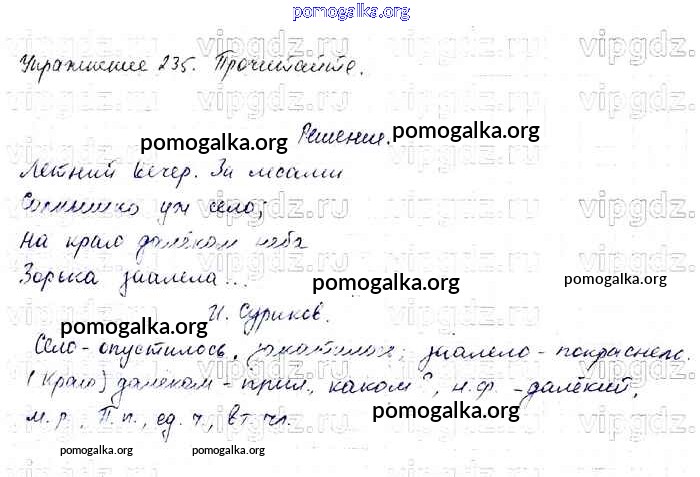 pomogalka.org
Упражнение 235. Прочитайте.
vipgdz.ru
Решение.
pomogalka.org pomogalka.org
Летний вечер. За лесами
Солнышко уж село;
На краю далёком неба
Зорька заалела...
pomogalka.org pomogalka.org
И. Суриков.
pomogalka.org
Село - опустилось, закатилось; заалело - покраснело.
(Краю) далёком - прил., каком?, н.ф. - далёкий,
м.р., П.п., ед.ч., вт. чл.
pomogalka.org
pomogalka.org pomogalka.org